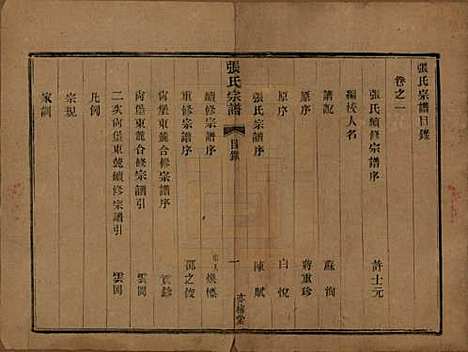 張氏宗譜目錄
卷之一
張氏續修宗譜序 許士元
編校人名
譜說 蘇洵
原序 蔣重珍
原序 白悅
張氏宗譜序 陳賦
張氏宗譜 目錄 一
續修宗譜序
重修宗譜序 鄒之俊
尙堡東麓合修宗譜序
尙堡東麓續修宗譜引 雲閣
二次尙堡東麓續修宗譜引 雲閣
凡例
宗規
家訓